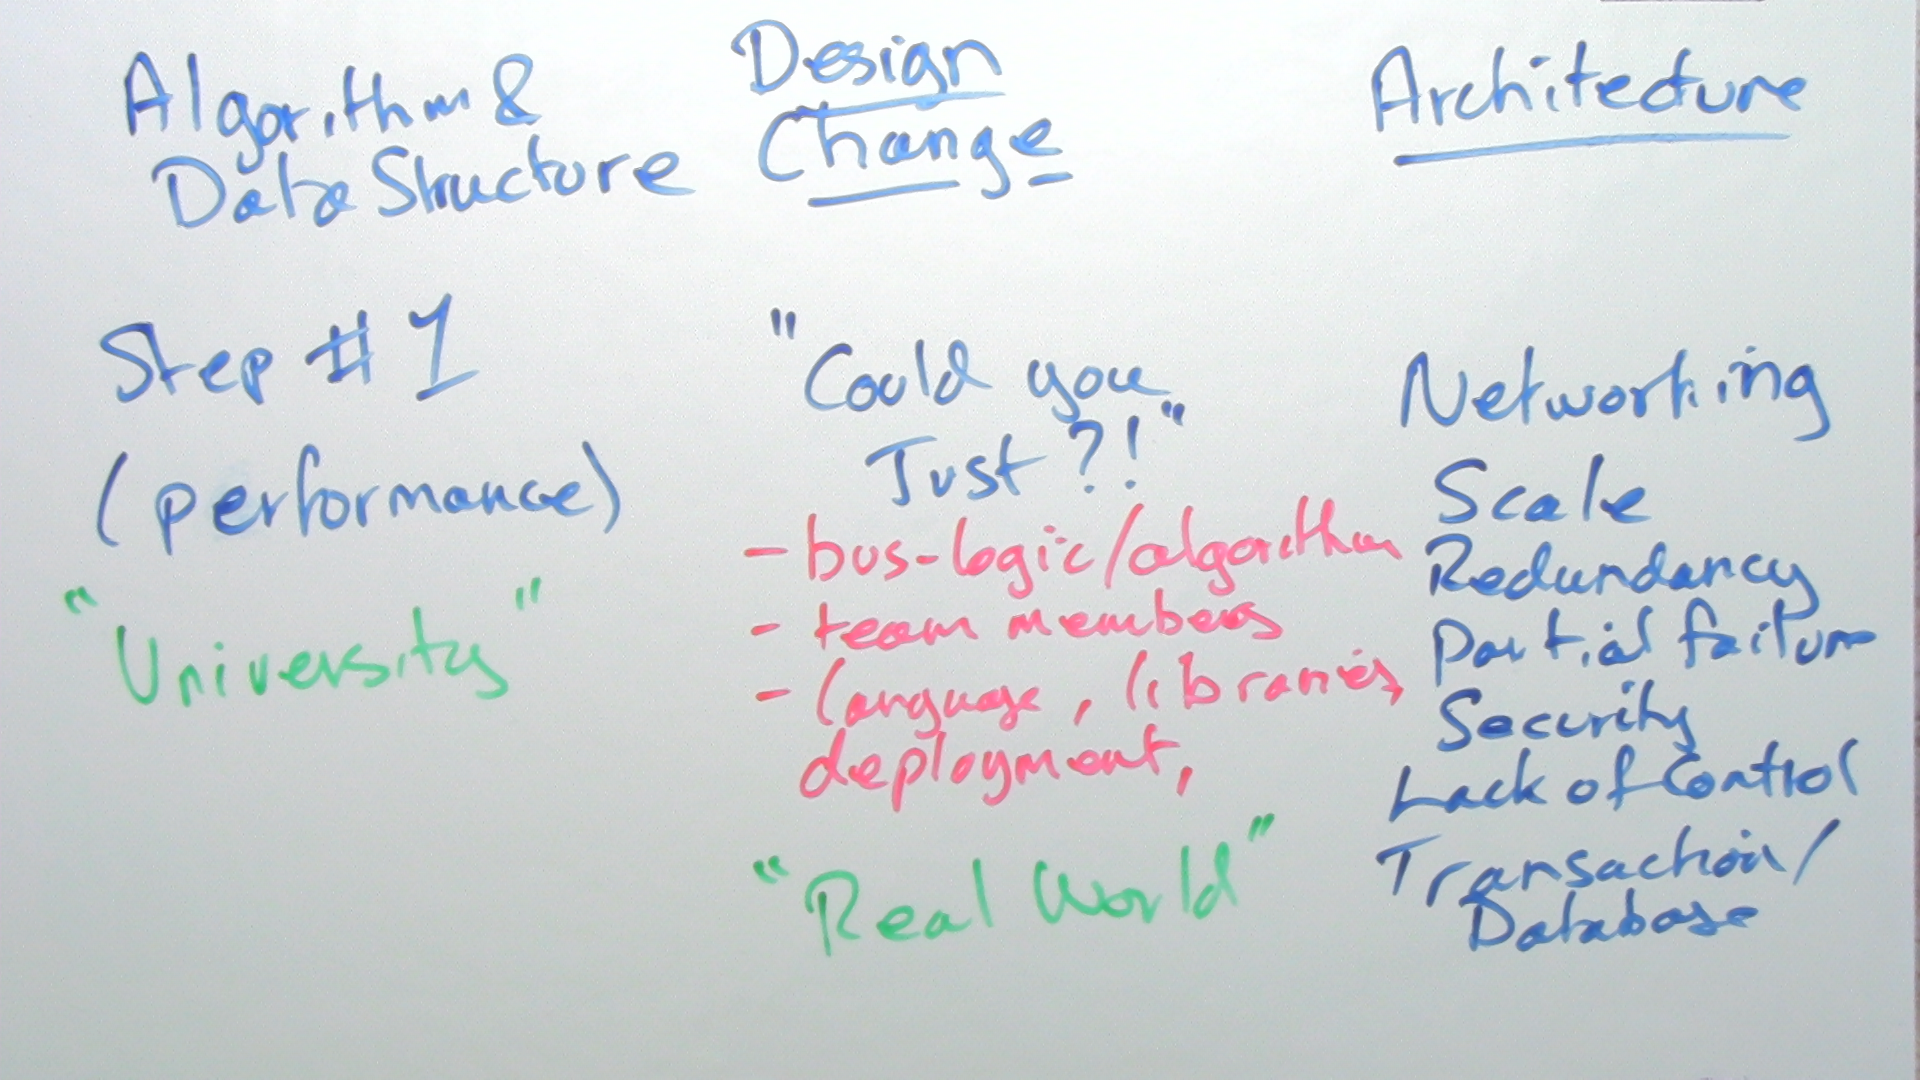 Algorithm &
Data Structure
Step # 1
(performance)
"University"
Design
Change
"Could you
Just?!"
- bus-logic/algorithm
- team members
- language, libraries,
deployment,
"Real World"
Architecture
Networking
Scale
Redundancy
Partial failure
Security
Lack of Control
Transaction/
Database